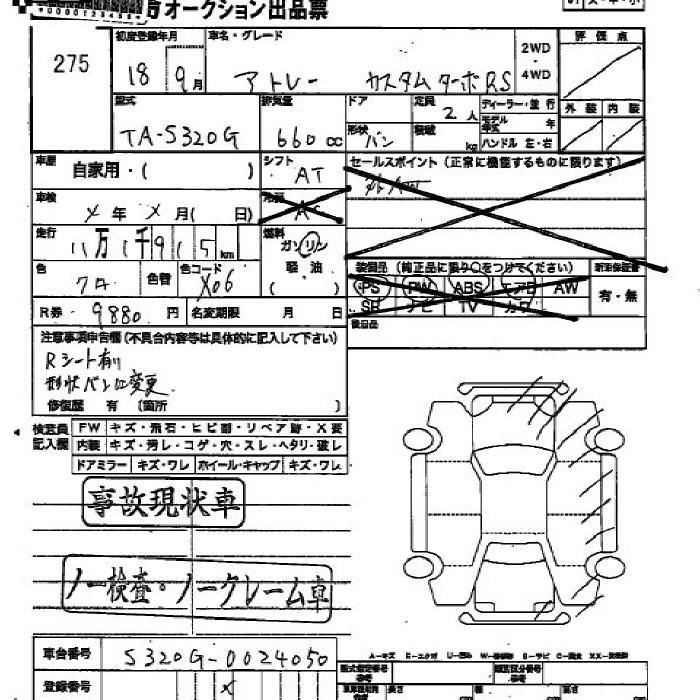 オークション出品票
275
初度登録年月
18 9月
車名・グレード
アトレー カスタムターボRS
2WD
・
4WD
評価点
型式
TA-S320G
排気量
660 cc
ドア
形状
バン
定員
2人
積載
kg
ディーラー・並行
モデル
年式
年
ハンドル 左・右
外装 内装
車歴
自家用・( )
シフト
AT
セールスポイント (正常に機能するものに限ります)
車検
メ年 メ月( 日)
冷房
走行
11万1千915km
燃料
ガソリン
軽油
( )
装備品 (純正品に限り○をつけてください)
新車保証書
PS PW ABS エアB AW
SR ナビ TV カワ
有・無
色
クロ
色替
色コード
X06
後日品
R券
9880円
名変期限 月 日
注意事項申告欄 (不具合内容等は具体的に記入して下さい)
Rシート有り
形状バンに変更
修復歴 有 (箇所 )
検査員
記入欄
FW キズ・飛石・ヒビ割・リペア跡・X要
内装 キズ・汚レ・コゲ・穴・スレ・ヘタリ・破レ
ドアミラー キズ・ワレ ホイール・キャップ キズ・ワレ
事故現状車
ノー検査・ノークレーム車
車台番号
S320G-0024050
登録番号
型式指定番号
類別区分番号